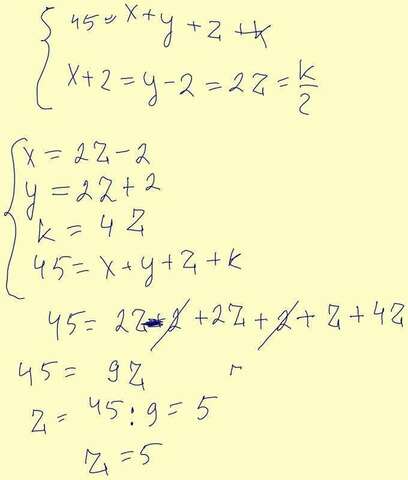 45 = x + y + z + k
x + 2 = y - 2 = 2z = k/2
x = 2z - 2
y = 2z + 2
k = 4z
45 = x + y + z + k
45 = 2z - 2 + 2z + 2 + z + 4z
45 = 9z
z = 45 : 9 = 5
z = 5